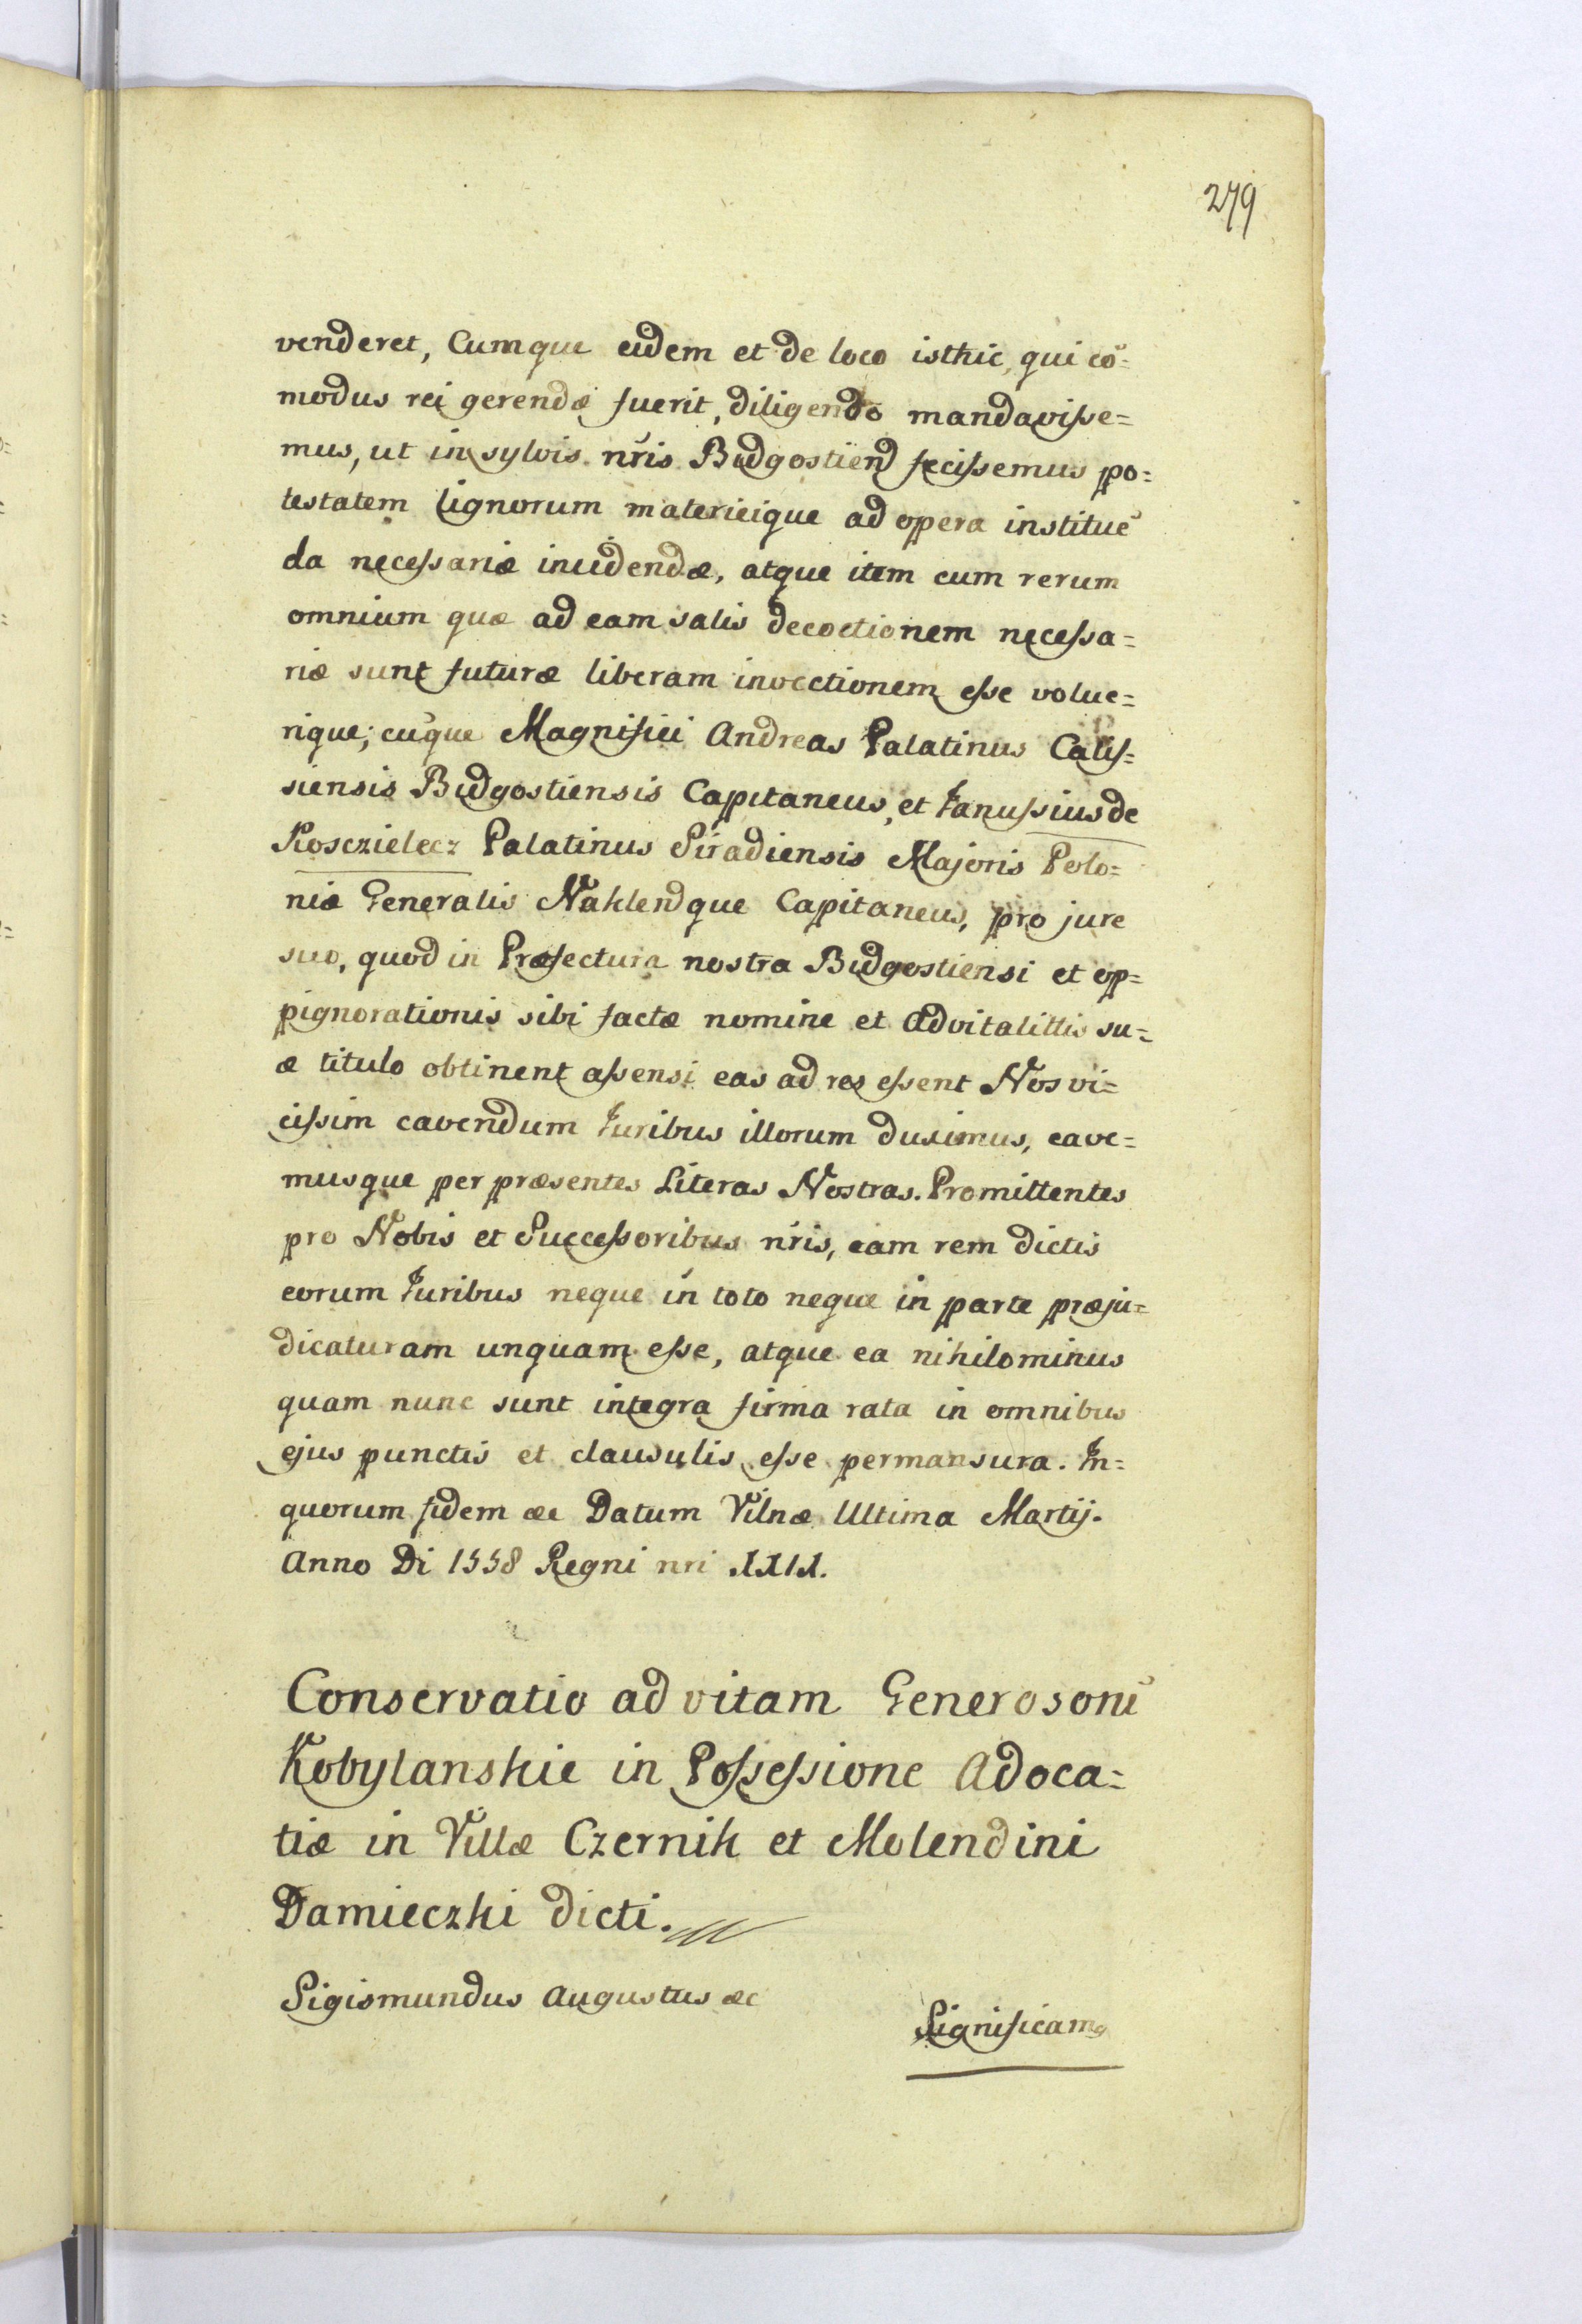 279
venderet, Cumque eidem et de loco isthic, qui cō=
modus rei gerendæ fuerit, diligendo mandavisse=
mus, ut in sylvis nr̃is Bidgostiend fecissemus po=
testatem lignorum materieique ad opera institue᷉
da necessariæ incidendæ, atque item cum rerum
omnium quæ ad eam salis decoctionem necessa=
riæ sunt futuræ liberam invectionem esse volue=
rique; cūque Magnifici Andreas Palatinus Calis=
siensis Bidgostiensis Capitaneus, et Janussius de
Kosczielecz Palatinus Siradiensis Majoris Polo=
niæ Generalis Naklendque Capitaneus, pro jure
suo, quod in Præfectura nostra Bidgostiensi et op=
pignorationis sibi factæ nomine et Advitalittis su=
æ titulo obtinent assensi eas ad res essent Nos vi=
cissim cavendum Juribus illorum duximus, cave=
musque per præsentes Literas Nostras. Promittentes
pro Nobis et Successoribus nr̃is, eam rem dictis
eorum Juribus neque in toto neque in parte præju=
dicaturam unquam esse, atque ea nihilominus
quam nunc sunt integra firma rata in omnibus
ejus punctis et clausulis esse permansura. In=
quorum fidem æc Datum Vilnæ Ultima Martij.
Anno Di 1558 Regni nri XXIX.
Conservatio ad vitam Generosorū
Kobylanskie in Possessione Adoca=
tiæ in Villæ Czernik et Molendini
Damieczki dicti.
Sigismundus Augustus æc
Significamg